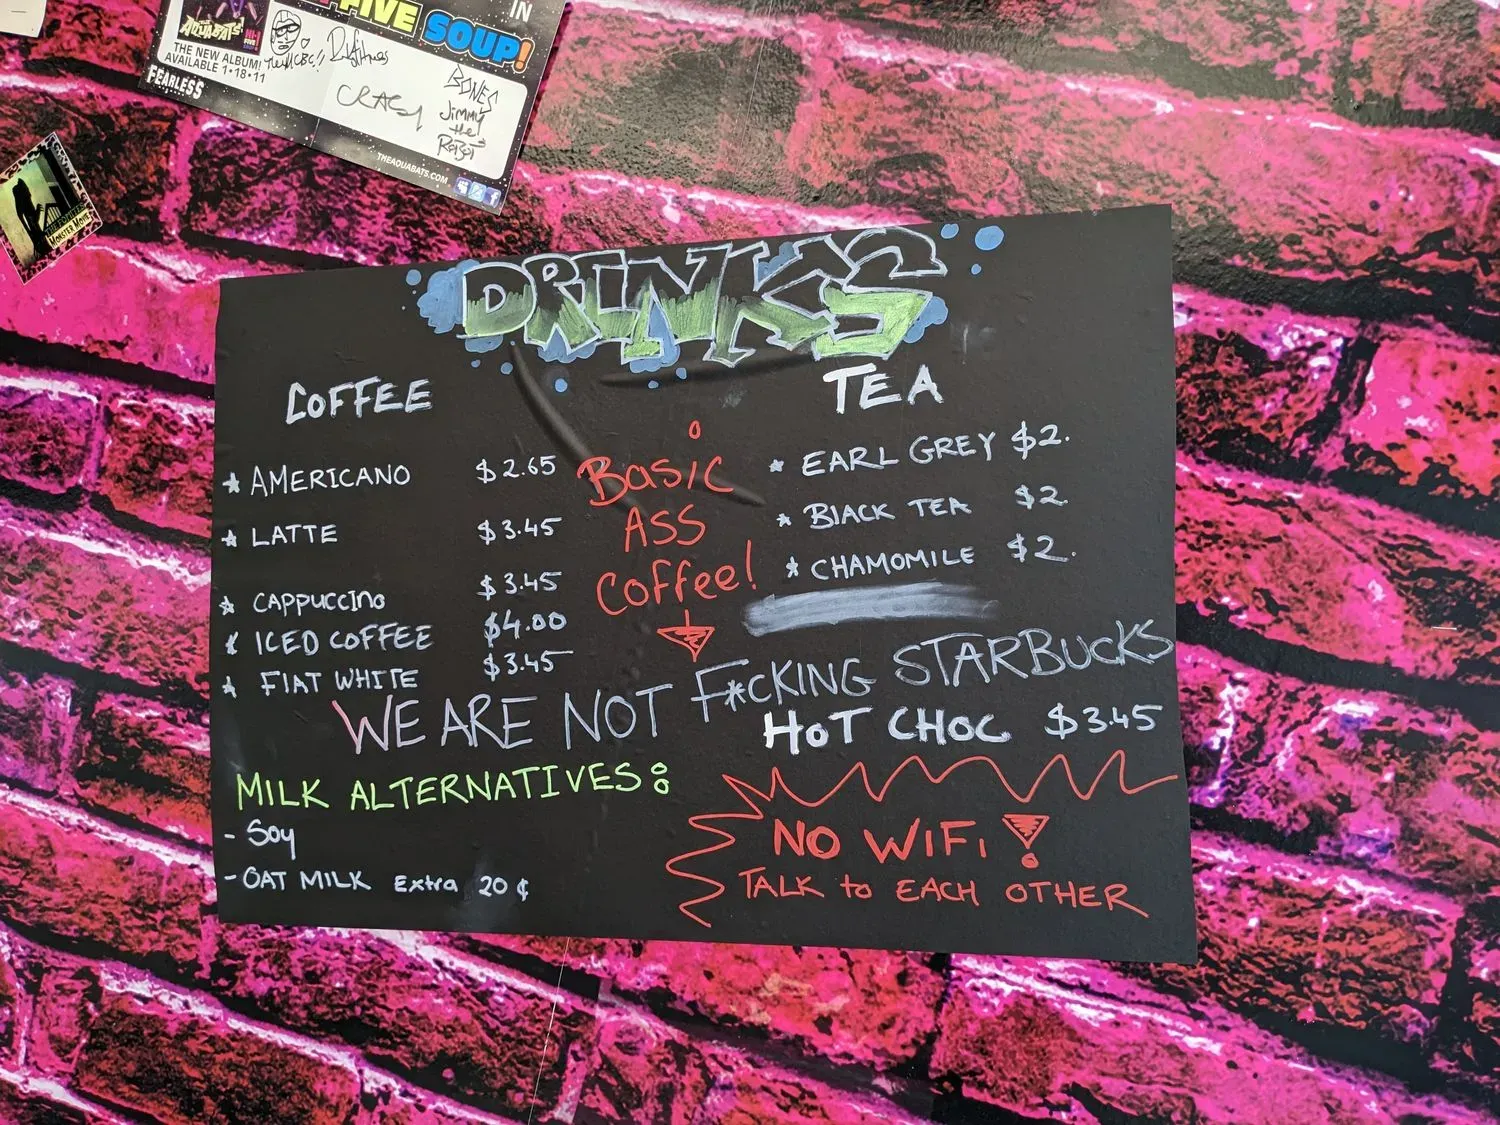 IN
FIVE SOUP!
THE AQUABATS
THE NEW ALBUM!
AVAILABLE 1•18•11
FEARLESS
CRASH
BONES
Jimmy
the
ROBOT
THEAQUABATS.COM
MONSTER MOVIE
DRINKS
COFFEE
TEA
* AMERICANO $2.65
* LATTE $3.45
* CAPPUCCINO $3.45
* ICED COFFEE $4.00
* FLAT WHITE $3.45
BASIC
ASS
COFFEE!
* EARL GREY $2.
* BLACK TEA $2.
* CHAMOMILE $2.
WE ARE NOT F*CKING STARBUCKS
HOT CHOC $3.45
MILK ALTERNATIVES:
- Soy
- OAT MILK Extra 20¢
NO WIFI!
TALK to EACH OTHER